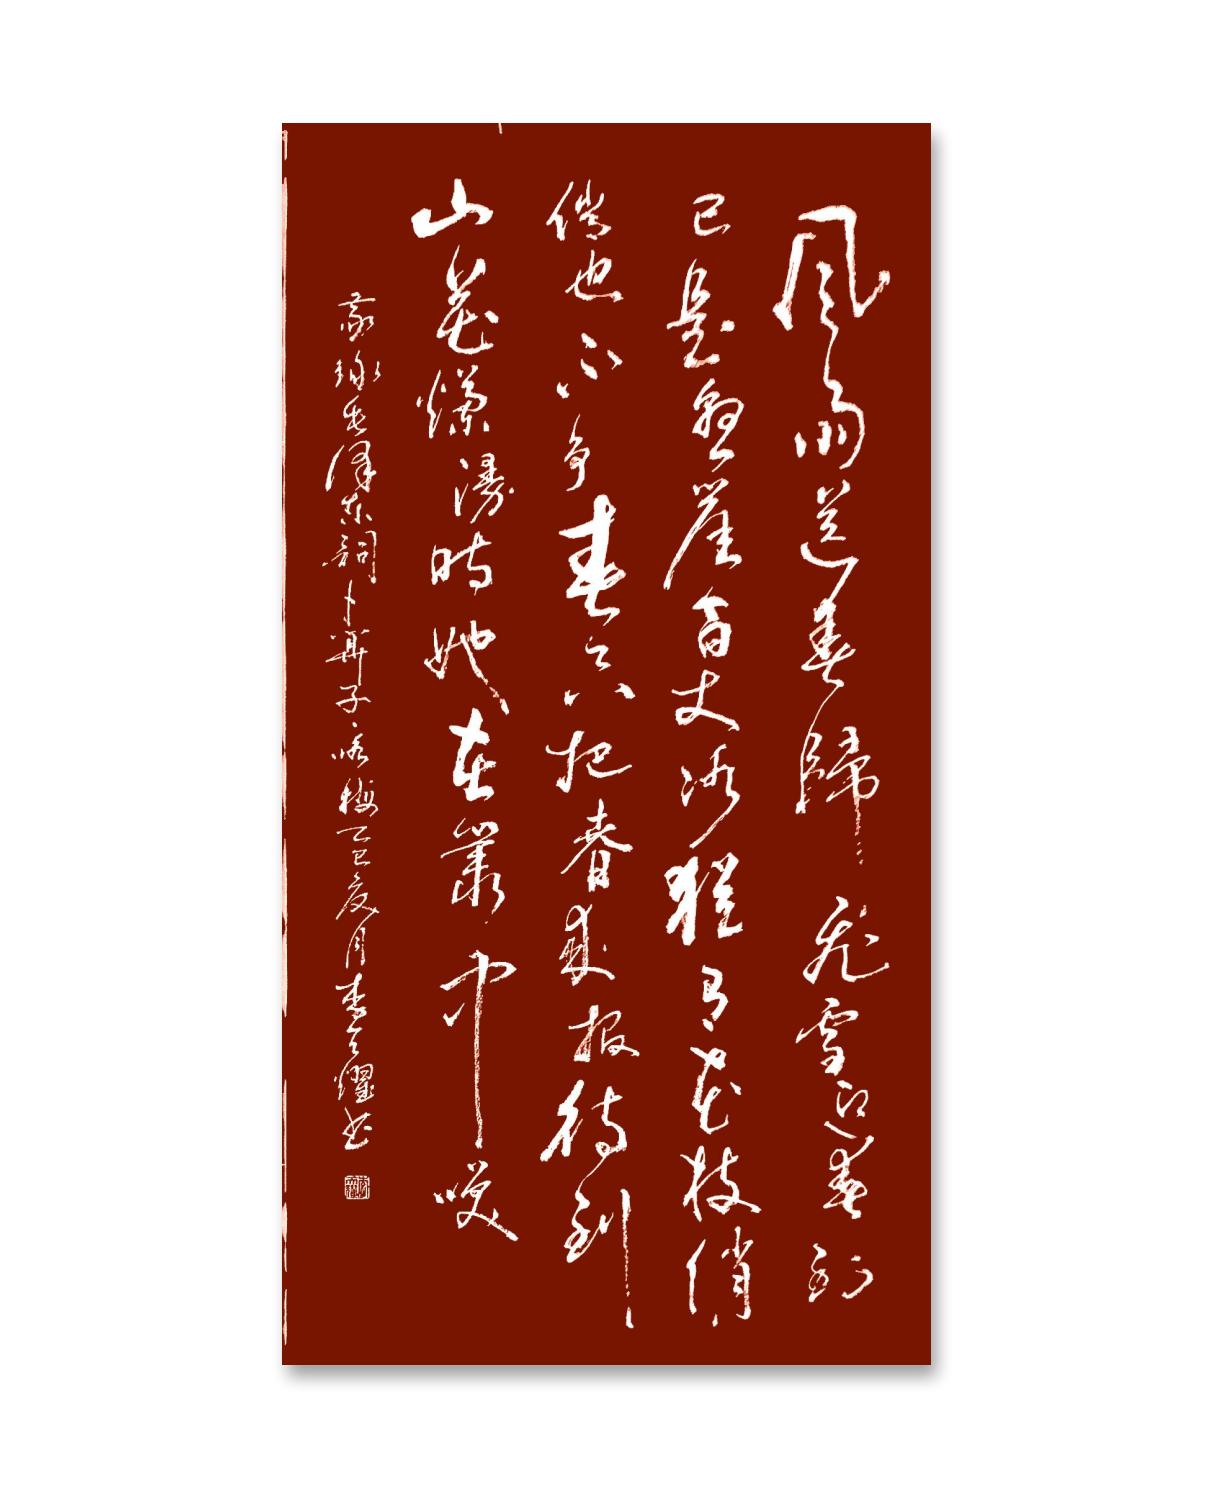 风雨送春歸飛雪迎春到
已是悬崖百丈冰猶有花枝俏
俏也不争春只把春来报待到
山花爛漫时她在叢中咲
敬録毛泽东詞卜算子、咏梅乙巳夏月李耀书